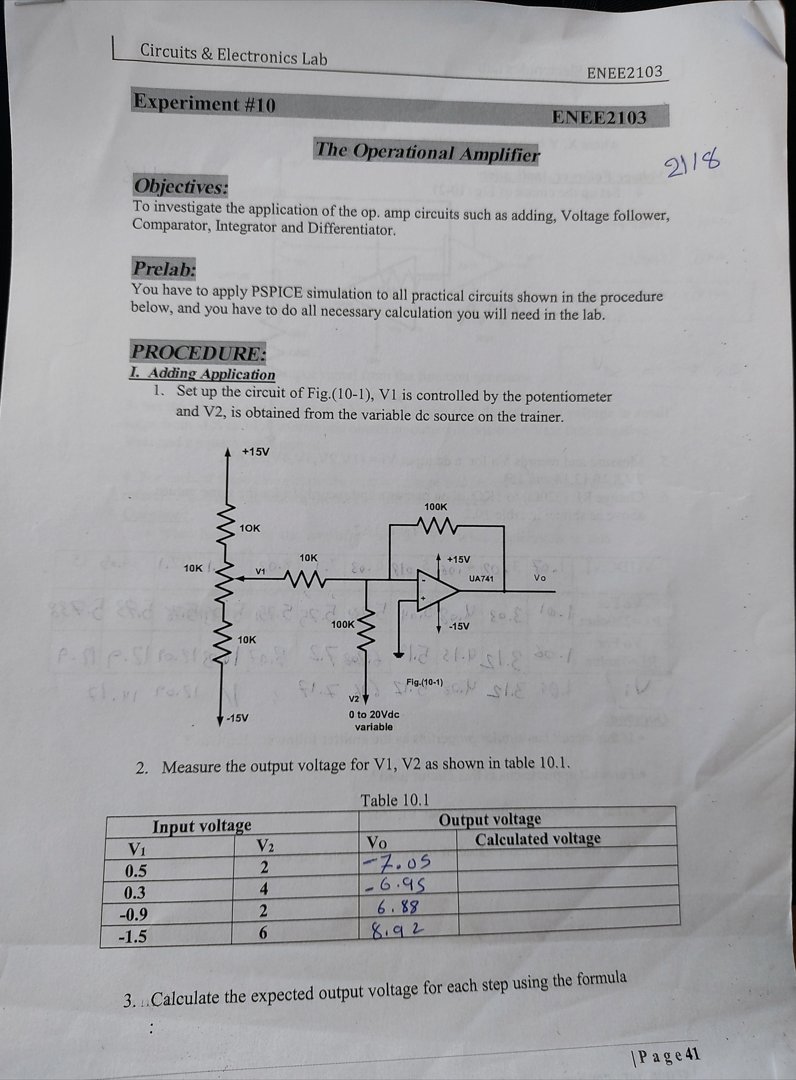 Circuits & Electronics Lab
ENEE2103
Experiment #10
ENEE2103
The Operational Amplifier
2118
Objectives:
To investigate the application of the op. amp circuits such as adding, Voltage follower,
Comparator, Integrator and Differentiator.
Prelab:
You have to apply PSPICE simulation to all practical circuits shown in the procedure
below, and you have to do all necessary calculation you will need in the lab.
PROCEDURE:
I. Adding Application
1. Set up the circuit of Fig.(10-1), V1 is controlled by the potentiometer
and V2, is obtained from the variable dc source on the trainer.
+15V
100K
10K
10K
+15V
10K
V1
UA741
Vo
-
+
100K
-15V
10K
Fig.(10-1)
V2
-15V
0 to 20Vdc
variable
2. Measure the output voltage for V1, V2 as shown in table 10.1.
Table 10.1
Input voltage Output voltage
V1 V2 Vo Calculated voltage
0.5 2 -7.05
0.3 4 -6.95
-0.9 2 6.88
-1.5 6 8.92
3. ..Calculate the expected output voltage for each step using the formula
:
|Page 41